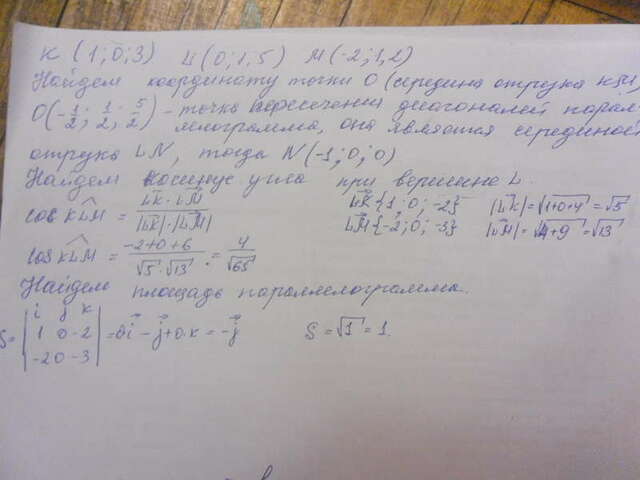 K (1; 0; 3) L(0; 1; 5) M(-2; 1; 2)
Найдем координату точки O (середина отрезка KM)
O(-1/2; 1/2; 5/2) - точка пересечения диагоналей парал-
лелограмма, она является серединой
отрезка LN, тогда N(-1; 0; 0)
Найдем косинус угла при вершине L.
cos KLM = LK · LM / |LK| · |LM| LK{1; 0; -2} |LK| = √1+0+4 = √5
LM{-2; 0; -3} |LM| = √4+9 = √13
cos KLM = -2+0+6 / √5 · √13 = 4 / √65
Найдем площадь параллелограмма.
S = | i j k | = 0i - j + 0.k = -j S = √1 = 1.
1 0 -2
-2 0 -3